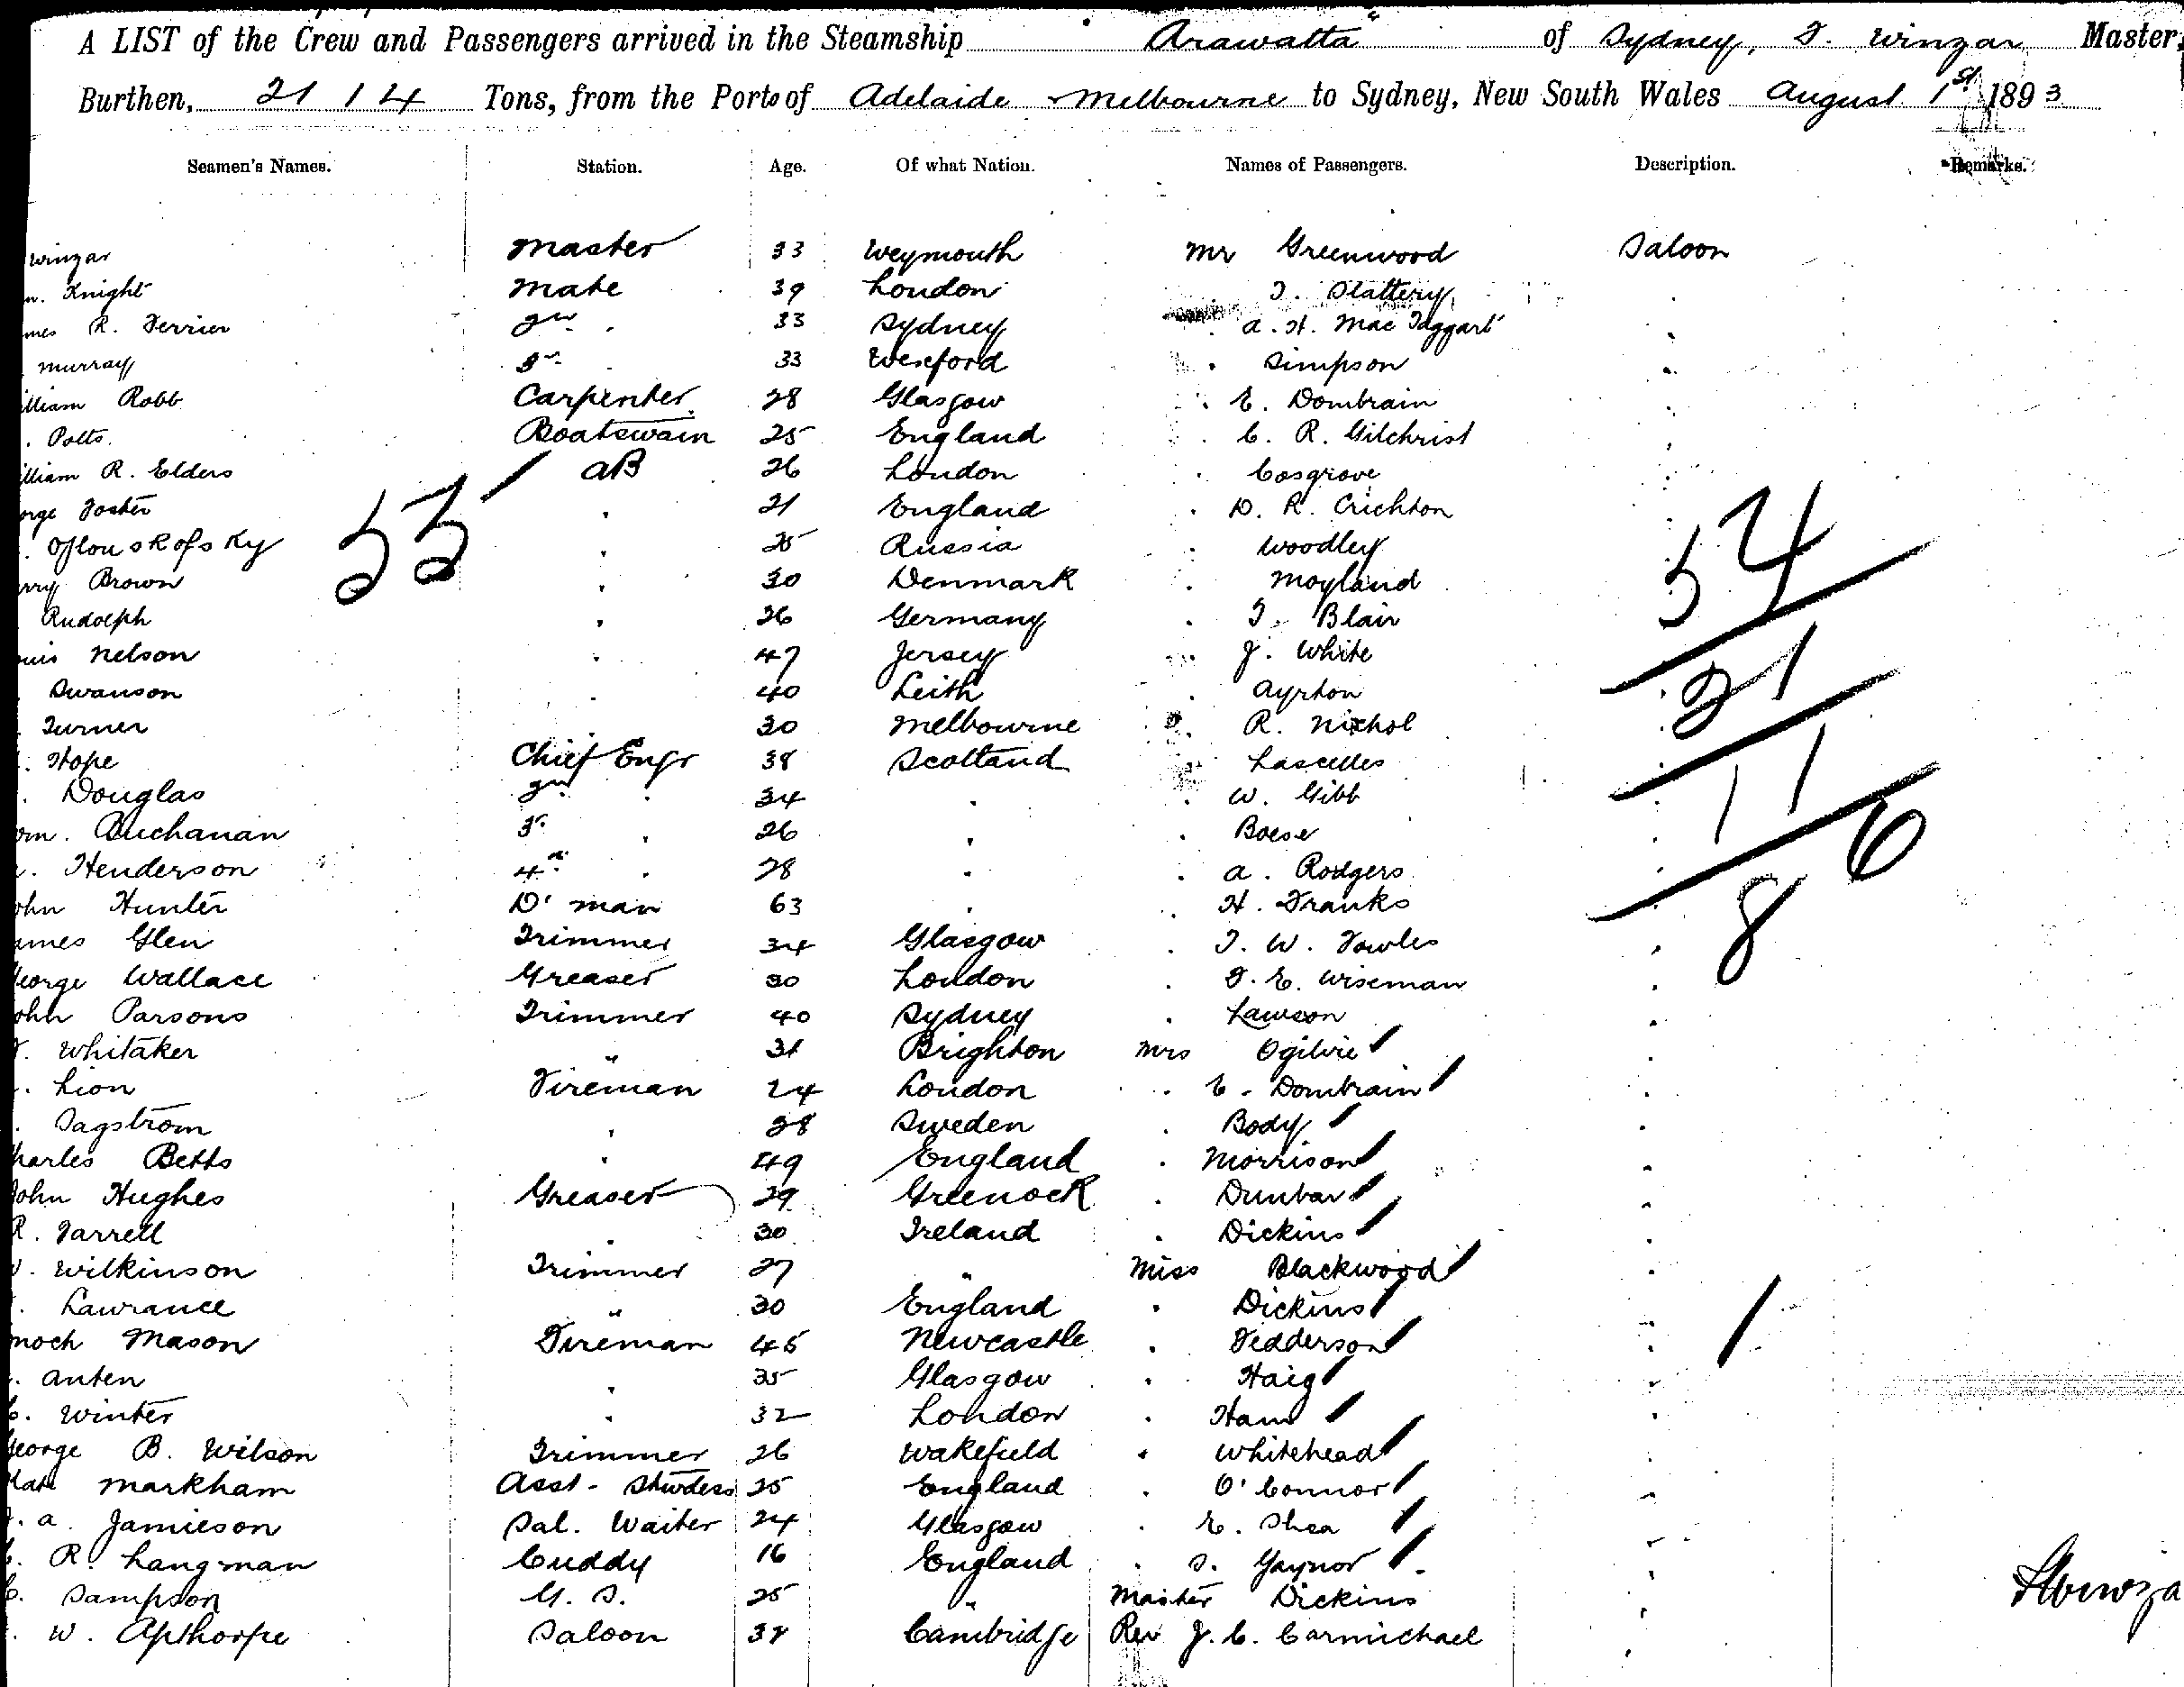 A LIST of the Crew and Passengers arrived in the Steamship "Arawatta" of Sydney, F. Winzar Master,
Burthen, 2114 Tons, from the Ports of Adelaide & Melbourne to Sydney, New South Wales August 1st 1893
Seamen's Names. Station. Age. Of what Nation. Names of Passengers. Description. Remarks.
Winzar Master 33 Weymouth Mr Greenwood Saloon
Knight Mate 39 London T. Slattery
mes R. Ferrier 2nd 33 Sydney A. H. MacTaggart
Murray 3rd 33 Wexford Simpson
illiam Robb Carpenter 28 Glasgow E. Dombrain
Potts Boatswain 25 England C. R. Gilchrist
illiam R. Elders AB 26 London Cosgrove
orge Foster 21 England D. R. Crichton
Oflouskofsky 25 Russia Woodley
rry Brown 30 Denmark Moyland
Rudolph 26 Germany T. Blair
uis Nelson 47 Jersey J. White
Swanson 40 Leith Ayrton
Turner 30 Melbourne R. Nichol
Hope Chief Engr 38 Scotland Lascelles
Douglas 2nd 34 W. Gibb
m. Buchanan 3rd 26 Boese
Henderson 4th 28 A. Rodgers
ohn Hunter D'man 63 H. Franks
ames Glen Trimmer 34 Glasgow T. W. Fowles
eorge Wallace Greaser 30 London F. E. Wiseman
ohn Parsons Trimmer 40 Sydney Lawson
Whitaker " 31 Brighton Mrs Ogilvie
Lion Fireman 24 London E. Dombrain
Sagstrom 28 Sweden Body
harles Betts 49 England Morrison
John Hughes Greaser 29 Greenock Dunbar
R. Farrell 30 Ireland Dickins
Wilkinson Trimmer 27 " Miss Blackwood
Lawrance " 30 England Dickins
noch Mason Fireman 45 Newcastle Fedderson
Anten 35 Glasgow Haig
C. Winter 32 London Ham
George B. Wilson Trimmer 26 Wakefield Whitehead
Kate Markham Asst. Stwdess 25 England O'Connor
A. Jamieson Sal. Waiter 24 Glasgow E. Shea
R. Langman Cuddy 16 England S. Gaynor
C. Sampson G. S. 25 " Master Dickins
W. Apthorpe Saloon 38 Cambridge Rev J. C. Carmichael
53
54
21
11
6
8
1